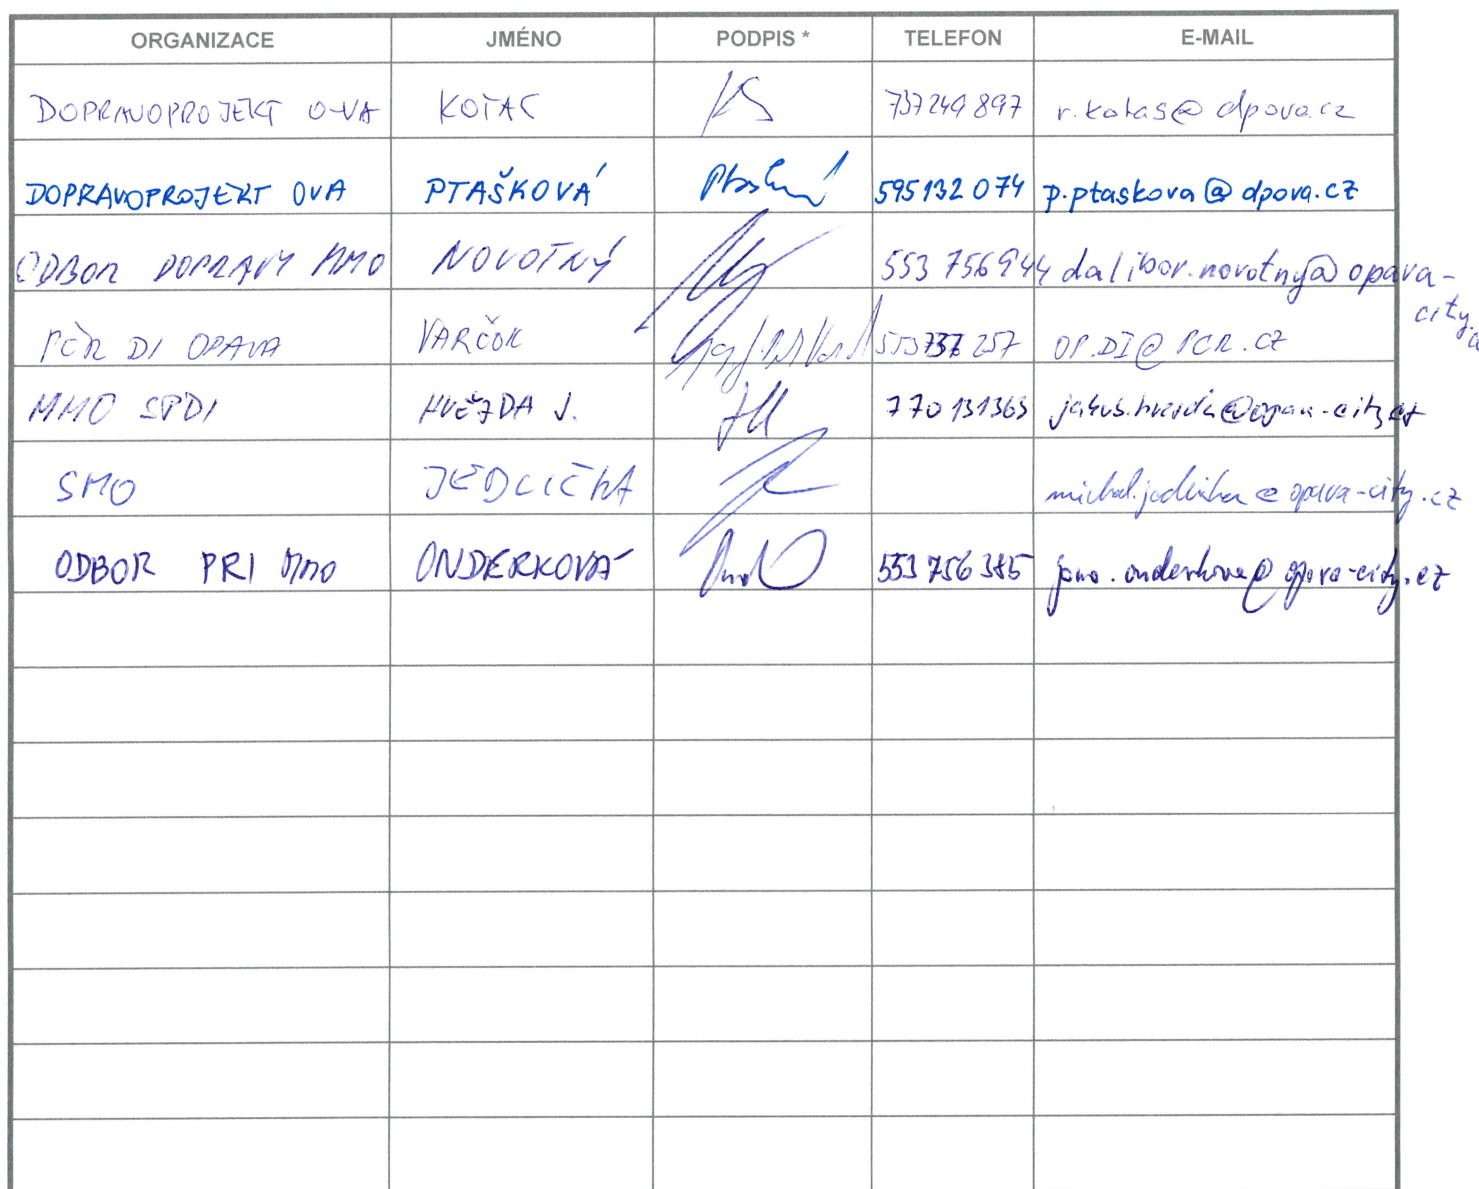 ORGANIZACE JMÉNO PODPIS * TELEFON E-MAIL
DOPRAVOPROJEKT O-VA KOTAS 737249897 r.kotas@dpova.cz
DOPRAVOPROJEKT OVA PTAŠKOVÁ 595132074 p.ptaskova@dpova.cz
ODBOR DOPRAVY MMO NOVOTNÝ 553 756944 dalibor.novotny@opava-
city.cz
PČR DI OPAVA VARČOK 553737 257 OP.DI@PCR.CZ
MMO SPDI HVĚZDA J. 770131363 jakub.hvezda@opava-city.cz
SMO JEDLIČKA michal.jedlicka@opava-city.cz
ODBOR PRI MMO ONDERKOVÁ 553 756 385 jana.onderkova@opava-city.cz